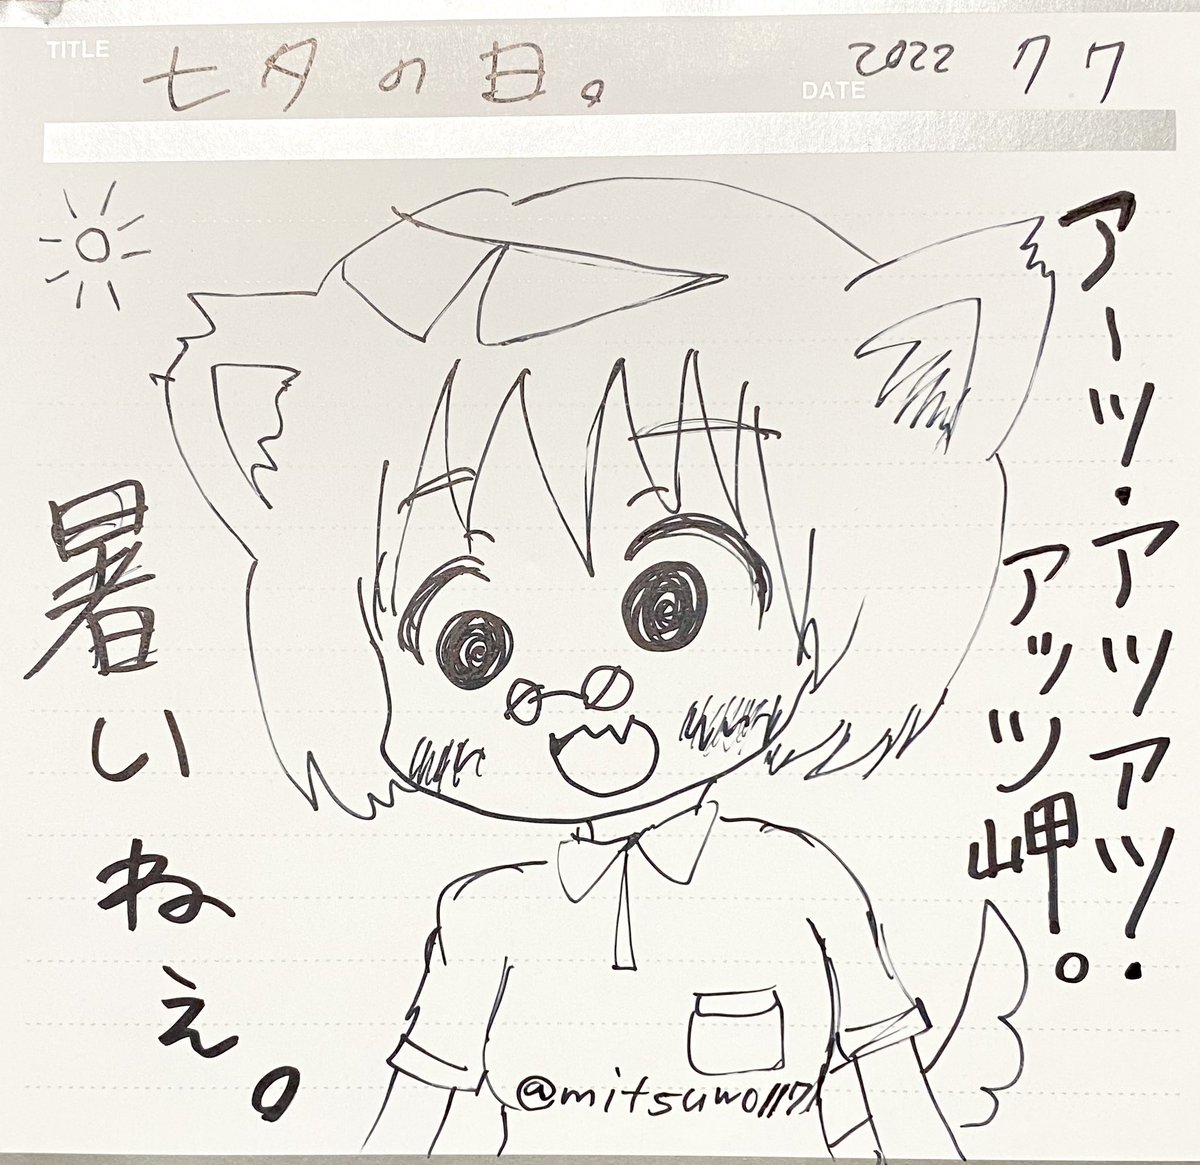 TITLE
七夕の日。
DATE
2022 7 7
アーッ・アツアツ・
アッツ岬。
暑いねぇ。
@mitsuwo1171